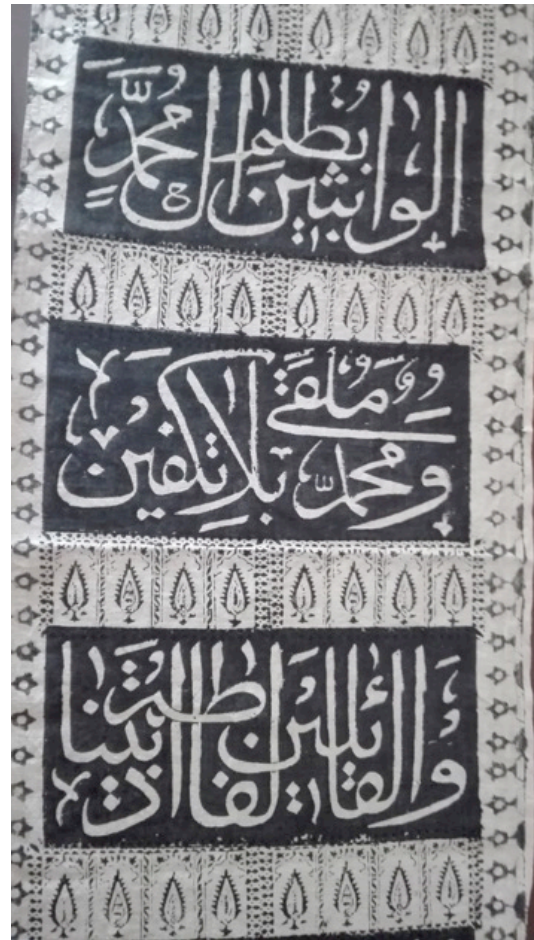 الواثبين بظلم آل محمد
ومحمد ملقى بلا تكفين
والقائلين لفاطمة اذيتنا